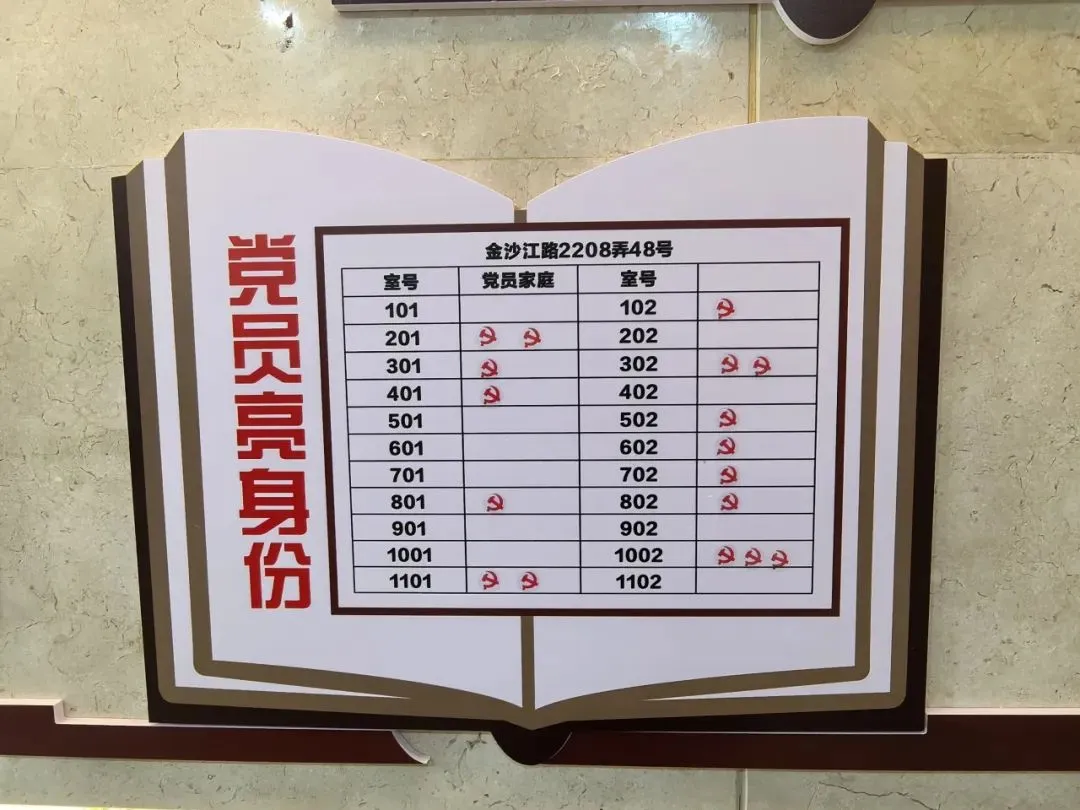 党员亮身份
金沙江路2208弄48号
室号 党员家庭 室号
101 102
201 202
301 302
401 402
501 502
601 602
701 702
801 802
901 902
1001 1002
1101 1102